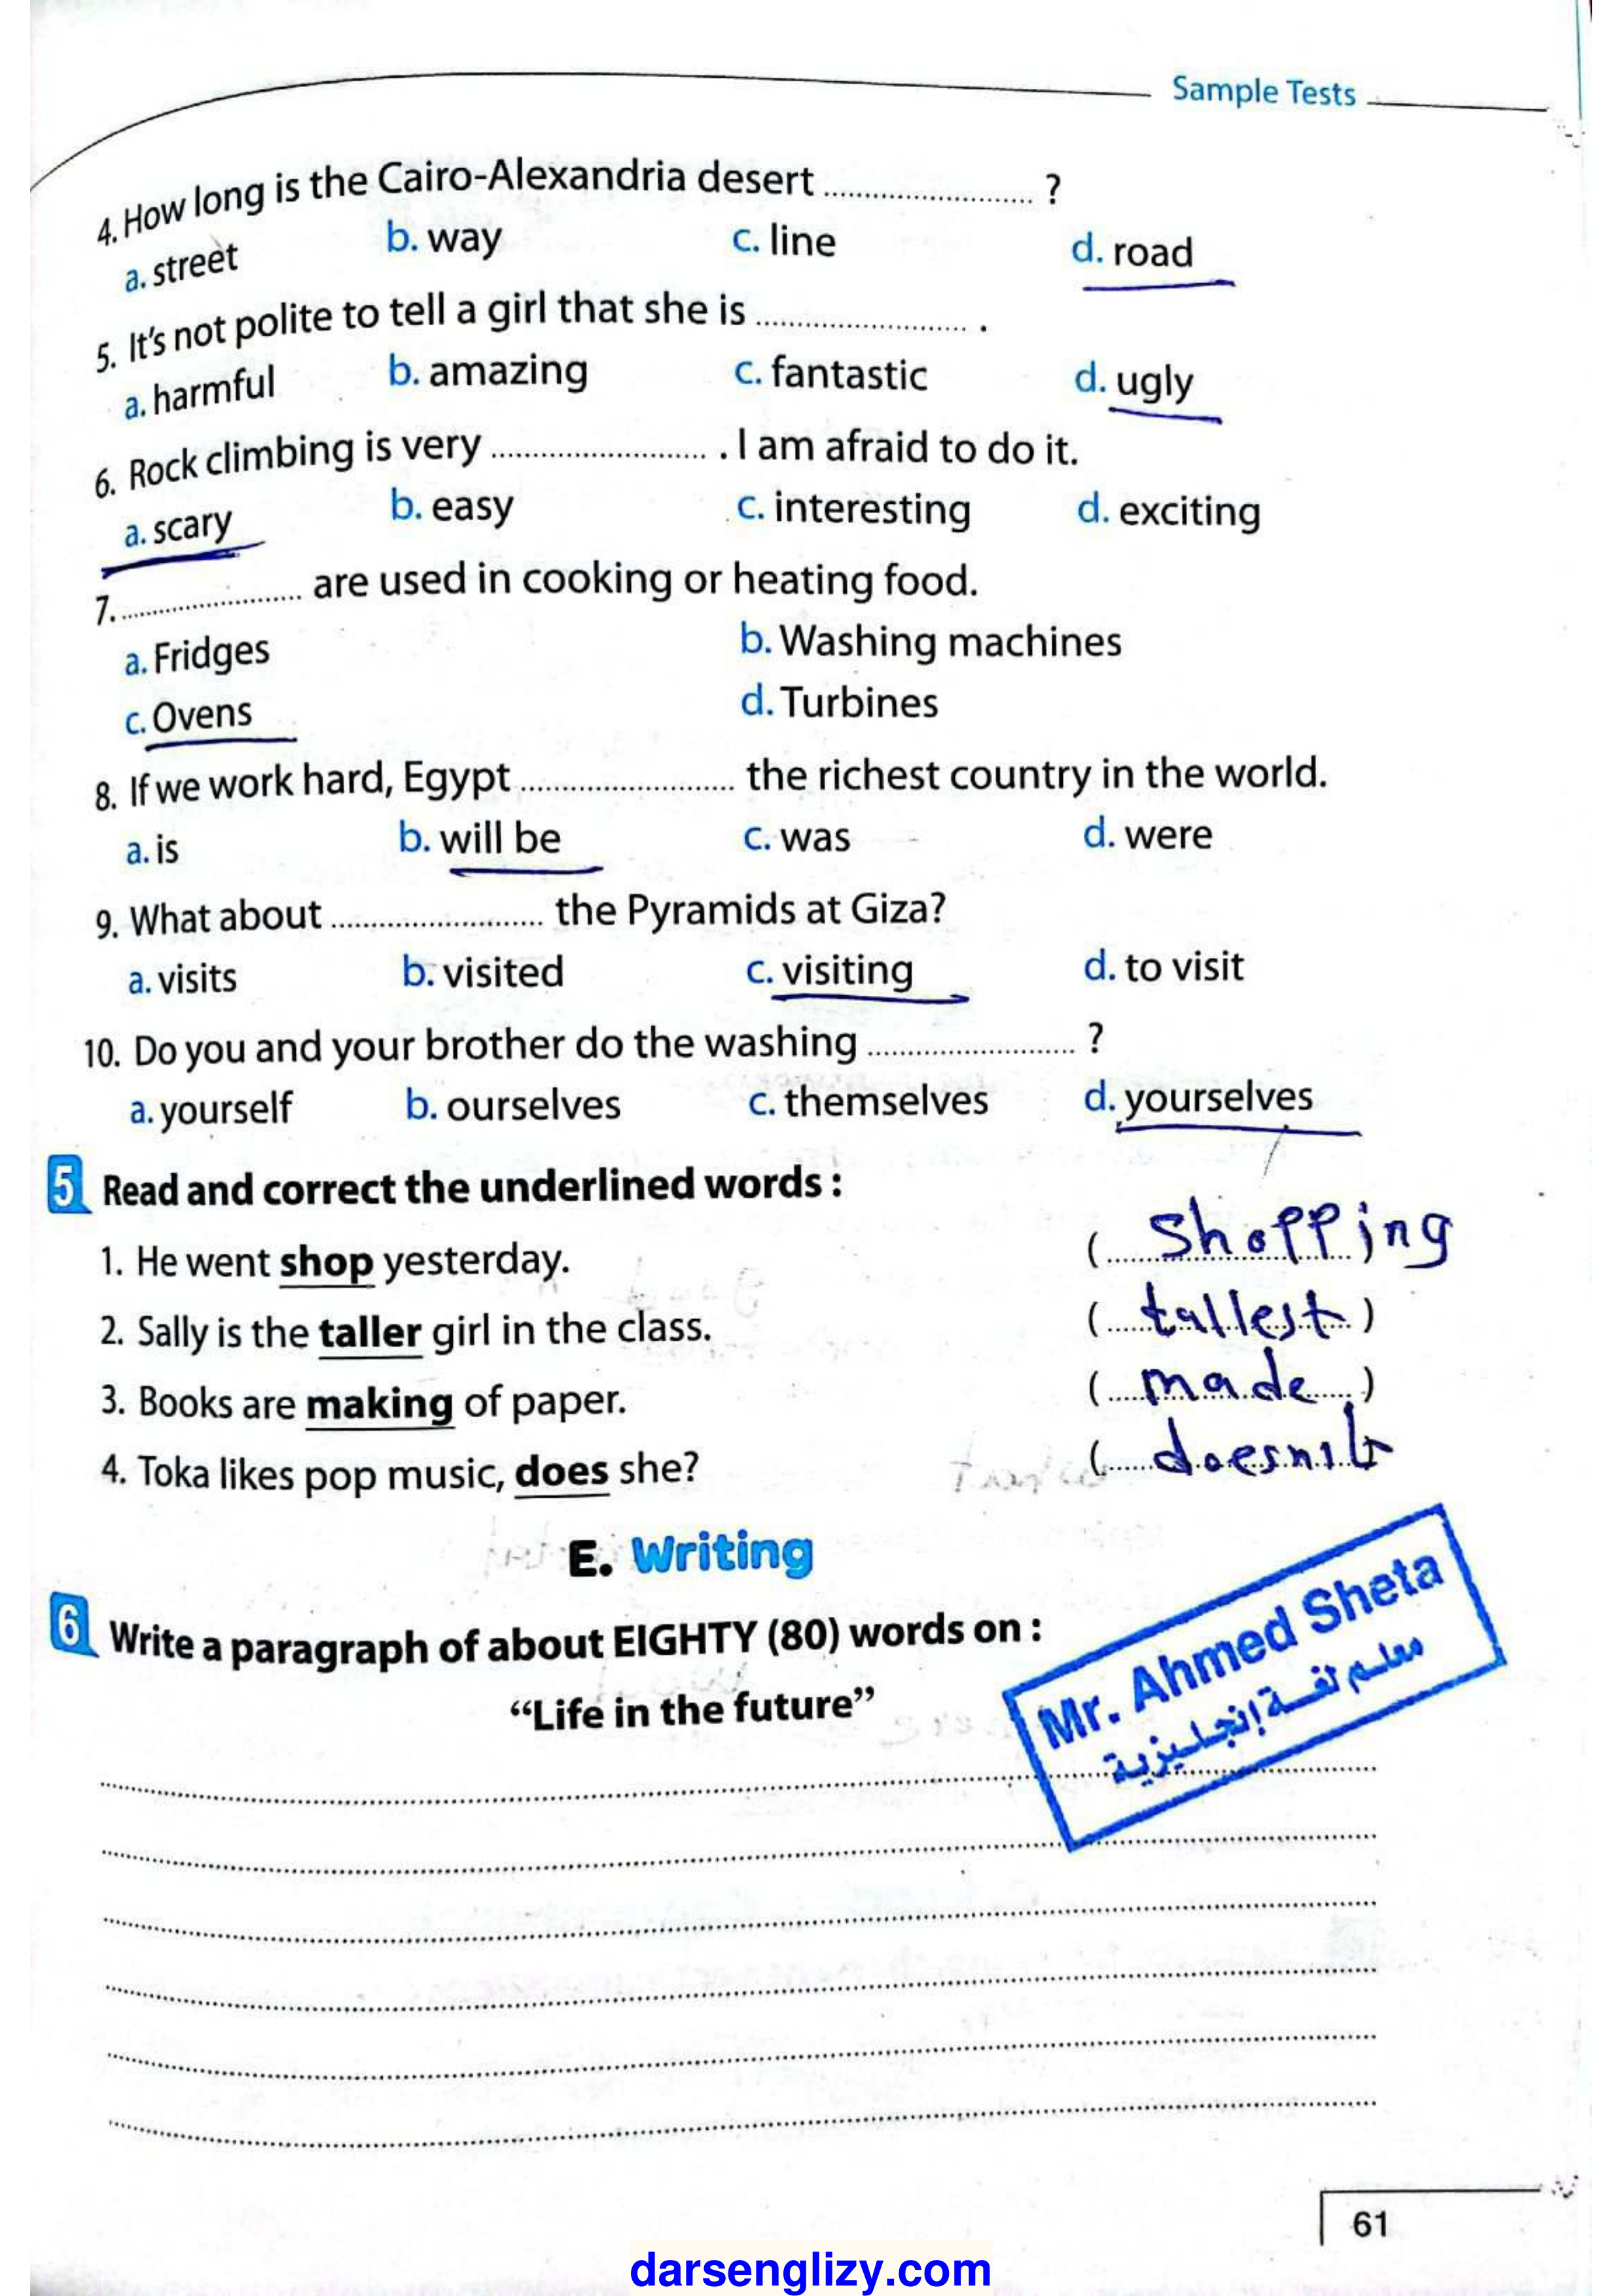 Sample Tests
4. How long is the Cairo-Alexandria desert ........................ ?
a. street b. way c. line d. road
5. It's not polite to tell a girl that she is ........................ .
a. harmful b. amazing c. fantastic d. ugly
6. Rock climbing is very ........................ . I am afraid to do it.
a. scary b. easy c. interesting d. exciting
7. ........................ are used in cooking or heating food.
a. Fridges b. Washing machines
c. Ovens d. Turbines
8. If we work hard, Egypt ........................ the richest country in the world.
a. is b. will be c. was d. were
9. What about ........................ the Pyramids at Giza?
a. visits b. visited c. visiting d. to visit
10. Do you and your brother do the washing ........................ ?
a. yourself b. ourselves c. themselves d. yourselves
5 Read and correct the underlined words :
1. He went shop yesterday. (shopping)
2. Sally is the taller girl in the class. (tallest)
3. Books are making of paper. (made)
4. Toka likes pop music, does she? (doesn't
E. Writing
6 Write a paragraph of about EIGHTY (80) words on :
“Life in the future”
Mr. Ahmed Sheta
معلم لغة إنجليزية
61
darsenglizy.com